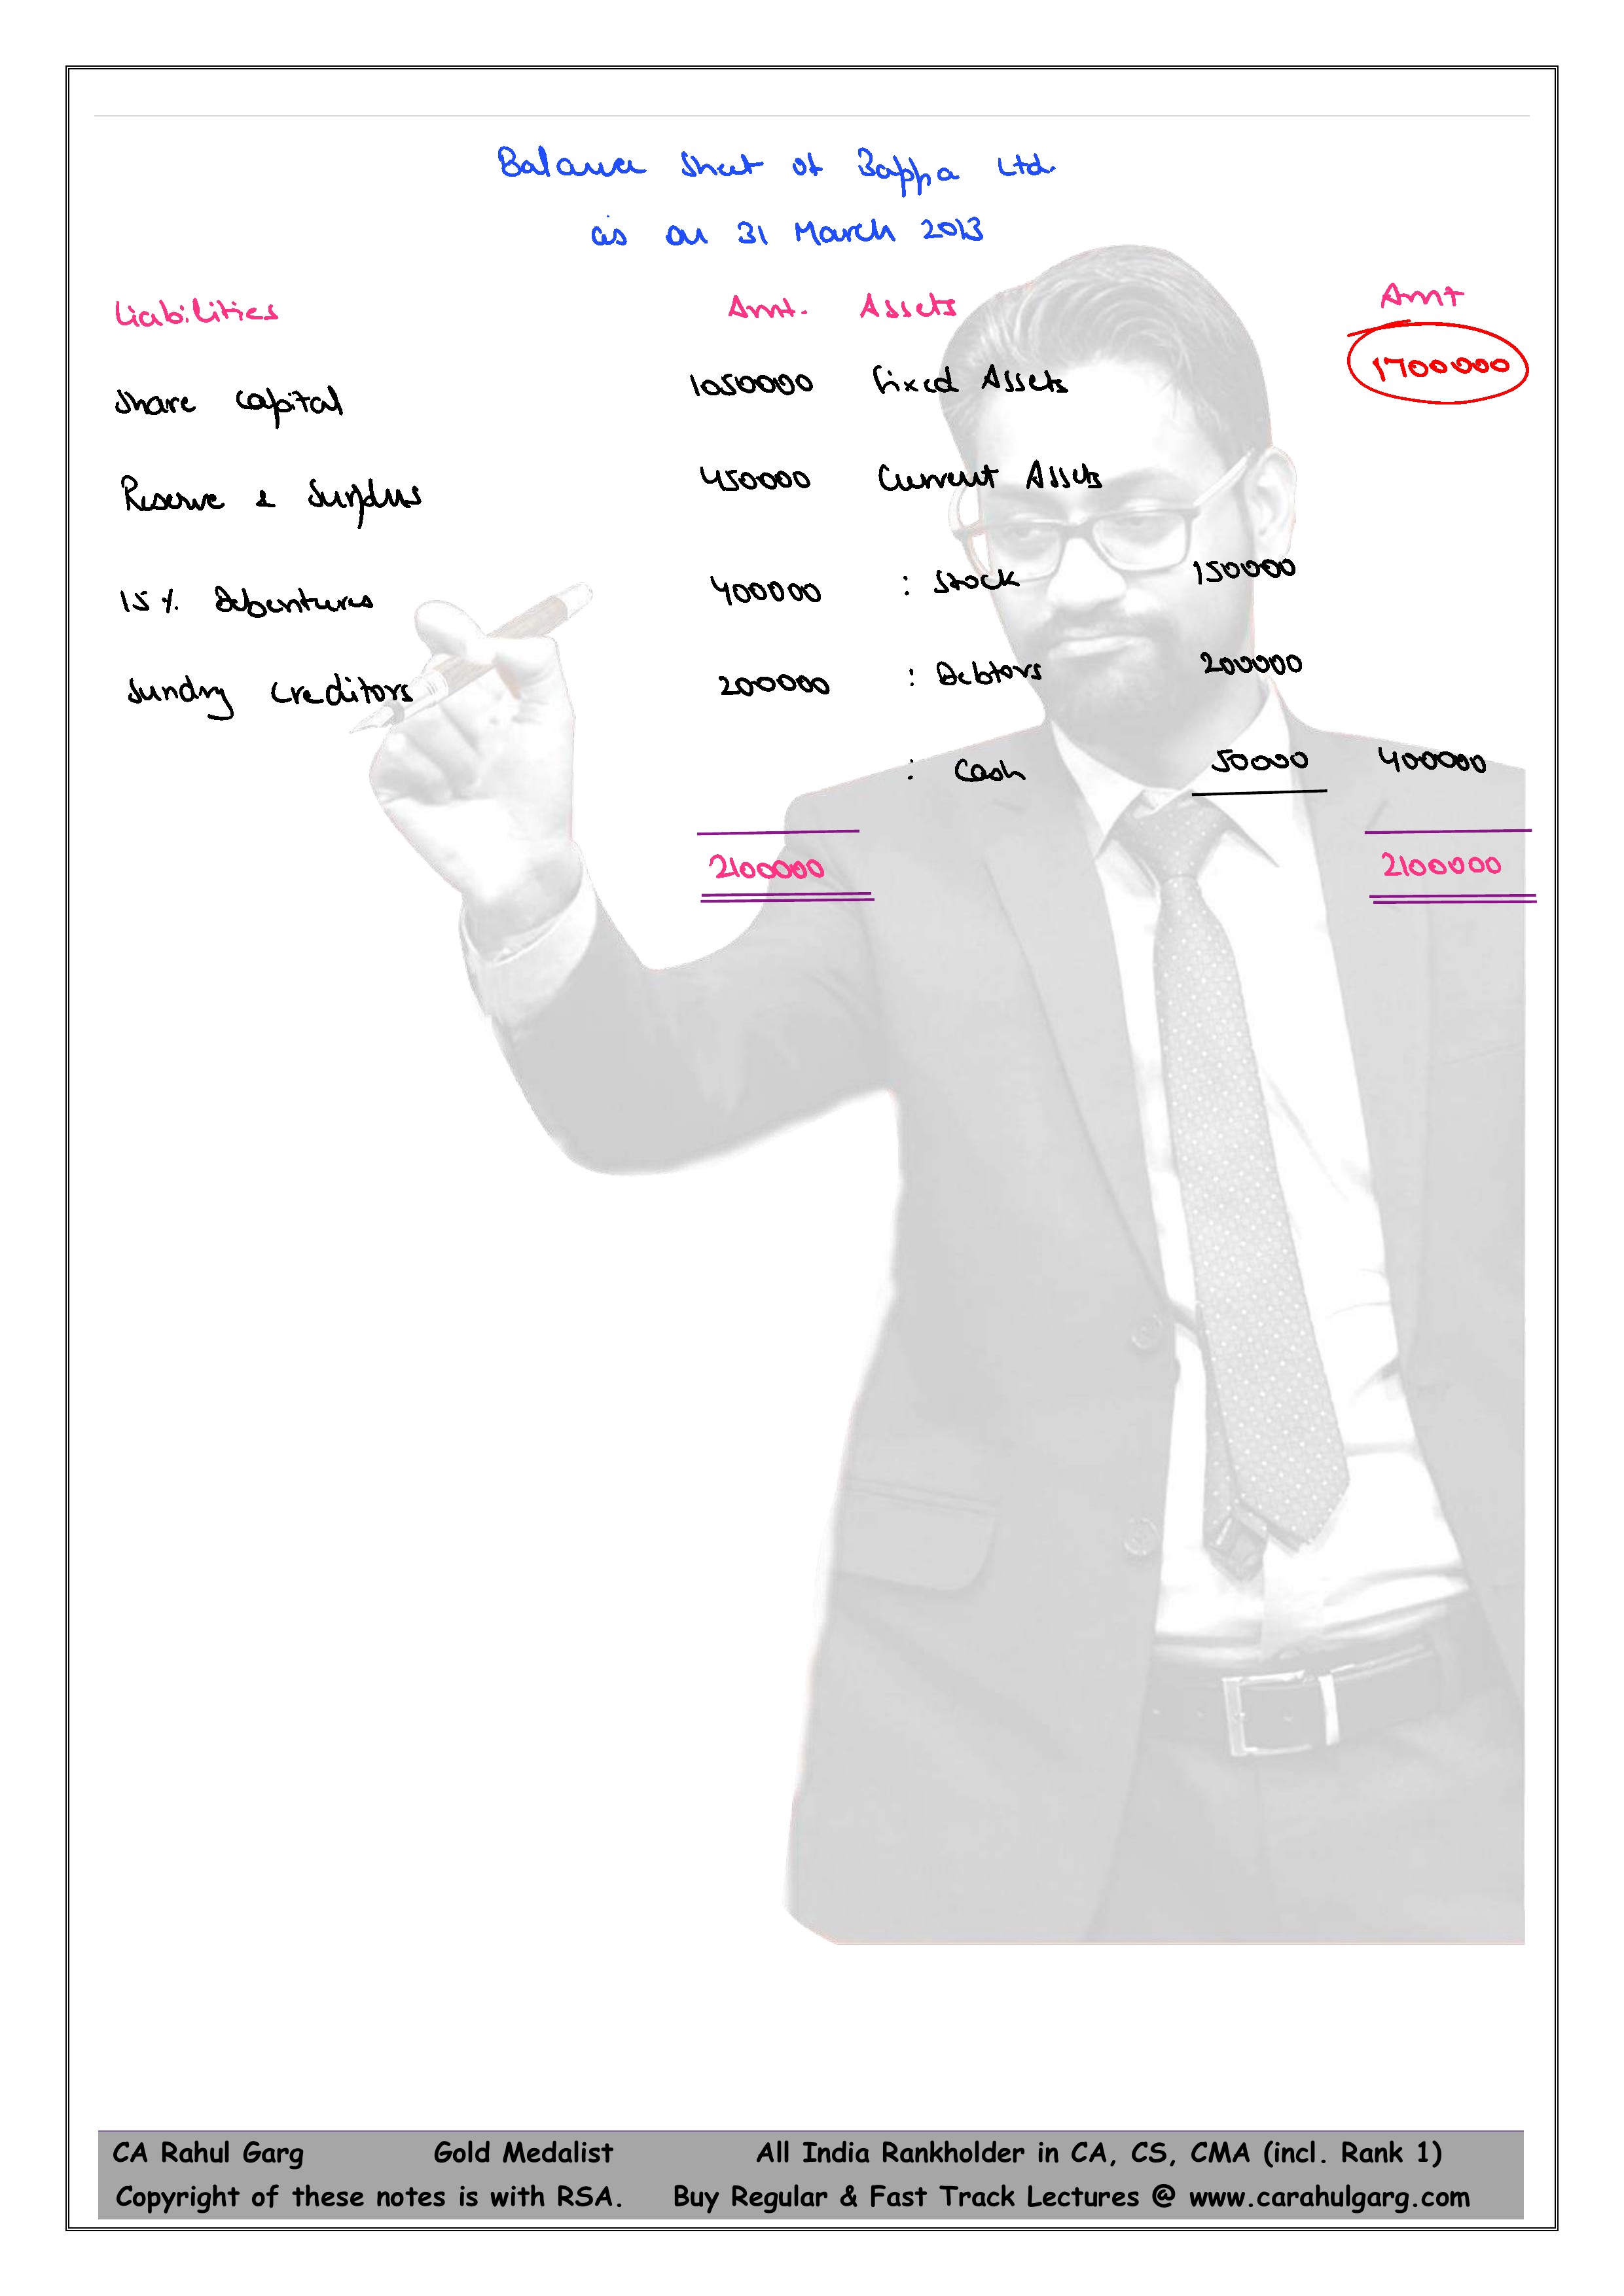 Balance Sheet of Bappa Ltd.
as on 31 March 2013
Liabilities Amt. Assets Amt
Share Capital 1050000 Fixed Assets 1700000
Reserve & Surplus 450000 Current Assets
15% Debentures 400000 : Stock 150000
Sundry Creditors 200000 : Debtors 200000
: Cash 50000 400000
2100000 2100000
CA Rahul Garg Gold Medalist All India Rankholder in CA, CS, CMA (incl. Rank 1)
Copyright of these notes is with RSA. Buy Regular & Fast Track Lectures @ www.carahulgarg.com